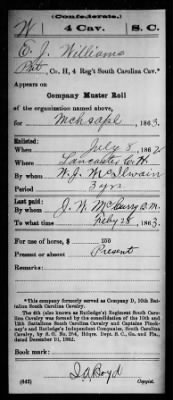 (Confederate.)
W 4 Cav. S. C.
E. J. Williams
Pvt, Co. H, 4 Reg't South Carolina Cav.*
Appears on
Company Muster Roll
of the organization named above,
for Mch & apl, 1863.
Enlisted:
When July 8, 1862
Where Lancaster C. H.
By whom W. J. McIlwain
Period 3 yrs
Last paid:
By whom J. W. McCurry B. M.
To what time Feby 28, 1863.
For use of horse, $ 100
Present or absent Present
Remarks:
*This company formerly served as Company D, 10th Battalion South Carolina Cavalry.
The 4th (also known as Rutledge's) Regiment South Carolina Cavalry was formed by the consolidation of the 10th and 12th Battalions South Carolina Cavalry and Captains Pinckney's and Rutledge's Independent Companies, South Carolina Cavalry, by S. O. No. 254, Hdqrs. Dept. S. C., Ga. and Fla., dated December 16, 1862.
Book mark:
(642) J. A. Boyd
Copyist.